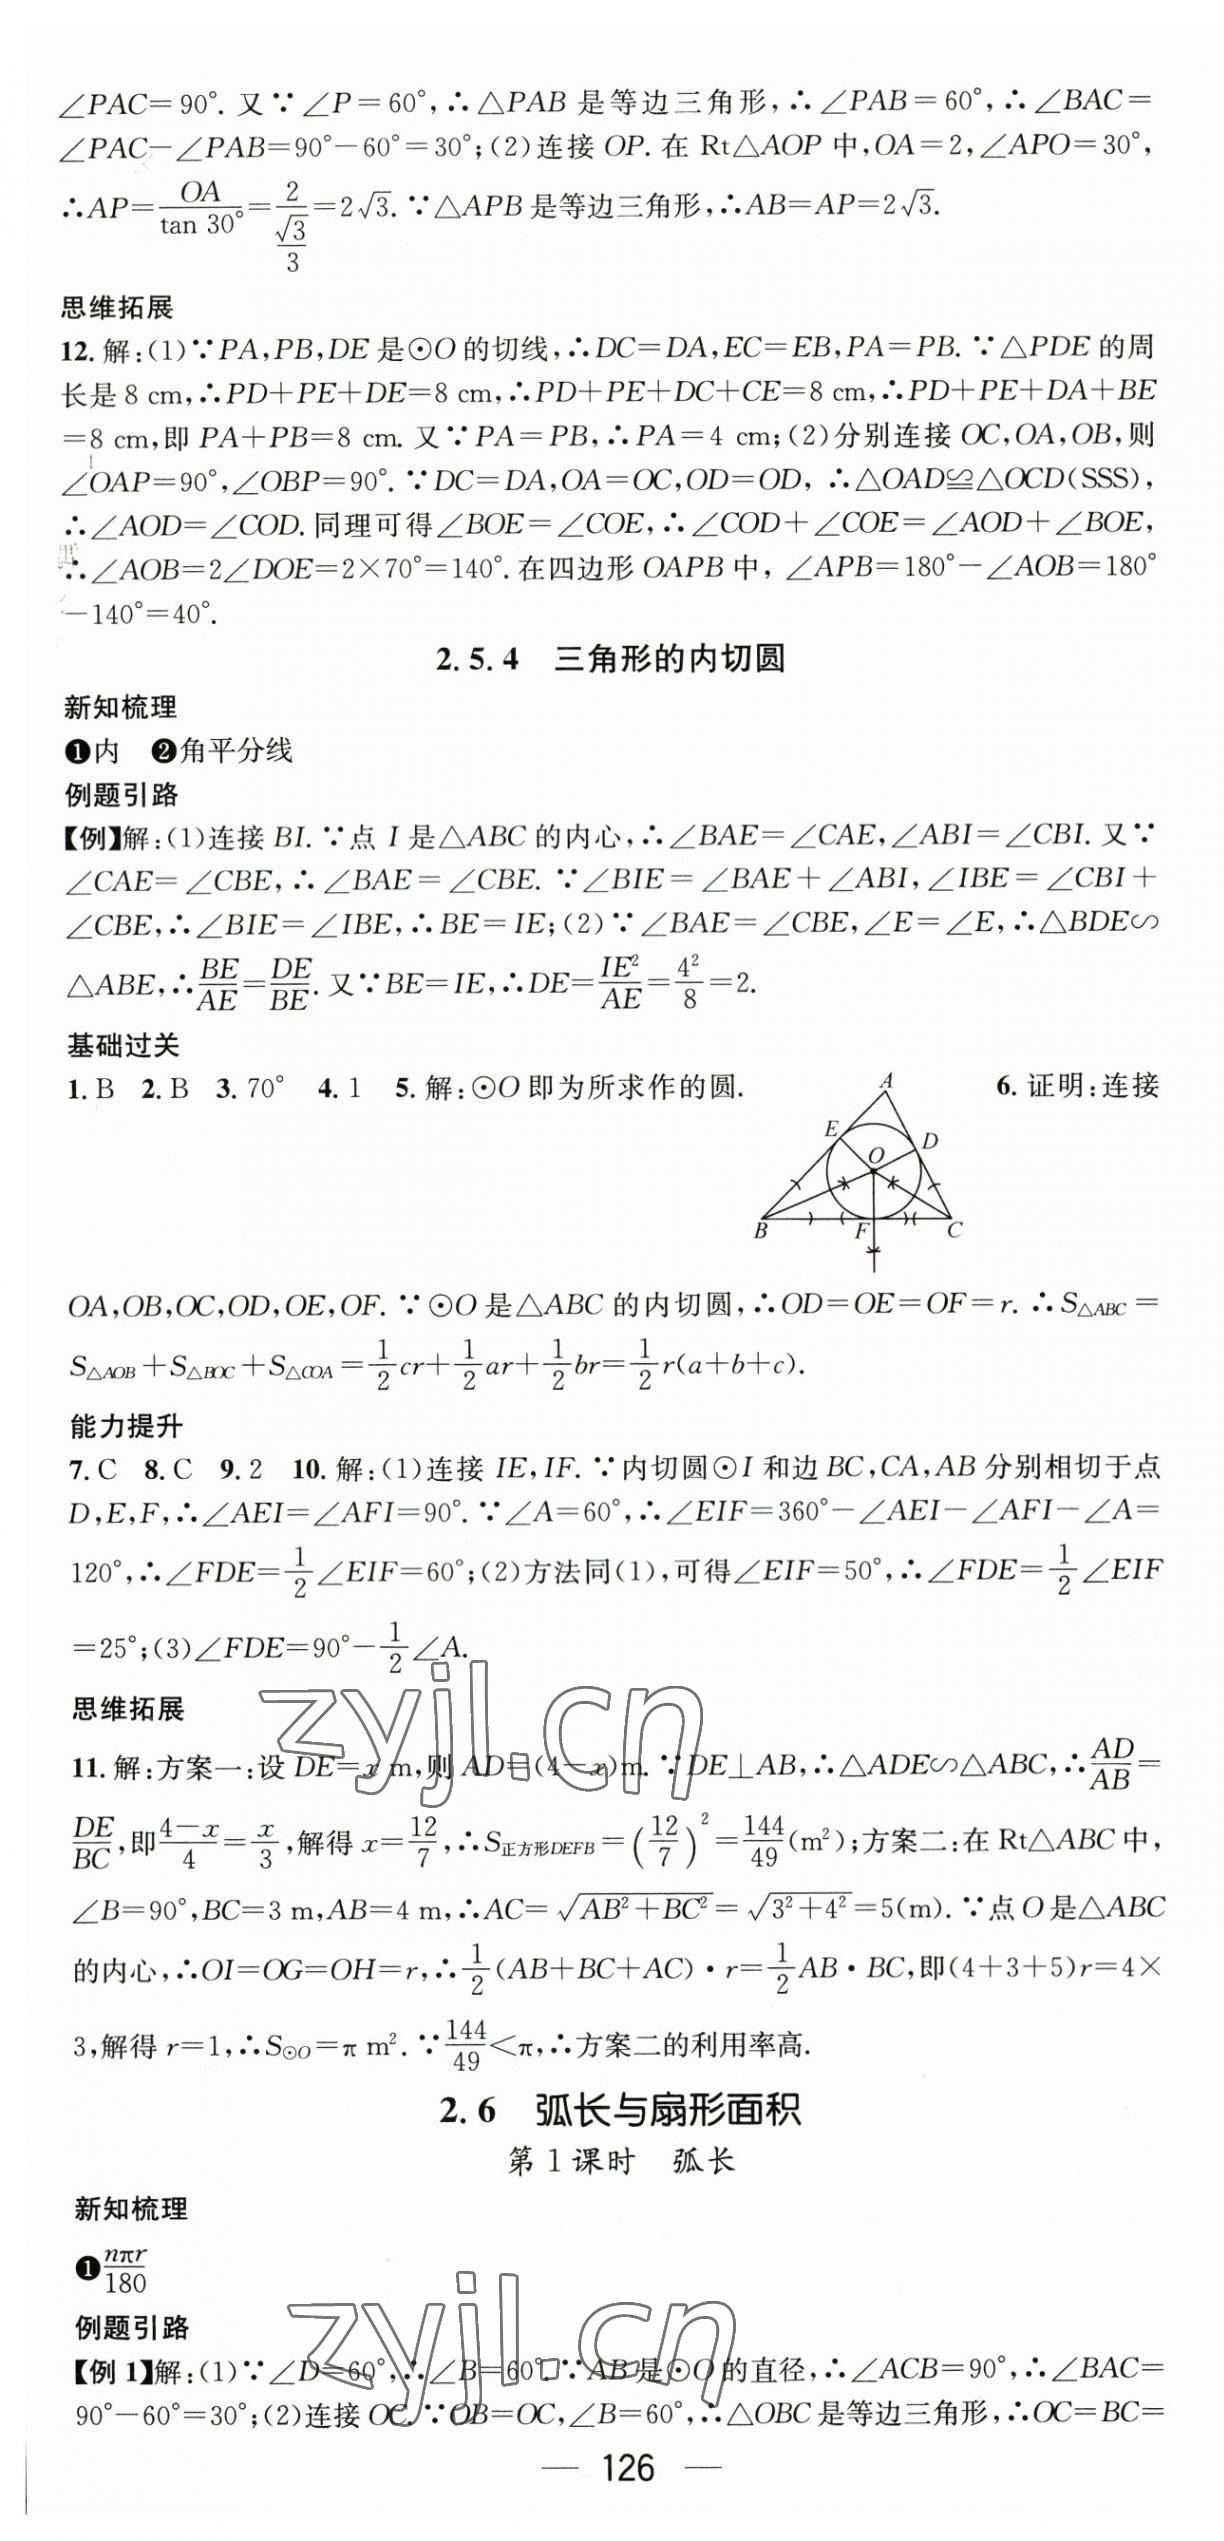 ∠PAC=90°. 又∵∠P=60°,∴△PAB是等边三角形,∴∠PAB=60°,∴∠BAC=
∠PAC-∠PAB=90°-60°=30°;(2)连接 OP. 在 Rt△AOP 中,OA=2,∠APO=30°,
∴AP=OA/tan 30°=2/(√3/3)=2√3. ∵△APB是等边三角形,∴AB=AP=2√3.
思维拓展
12. 解:(1)∵PA,PB,DE是⊙O的切线,∴DC=DA,EC=EB,PA=PB. ∵△PDE的周
长是 8 cm,∴PD+PE+DE=8 cm,∴PD+PE+DC+CE=8 cm,∴PD+PE+DA+BE
=8 cm,即 PA+PB=8 cm. 又∵PA=PB,∴PA=4 cm;(2)分别连接 OC,OA,OB,则
∠OAP=90°,∠OBP=90°. ∵DC=DA,OA=OC,OD=OD, ∴△OAD≌△OCD(SSS),
∴∠AOD=∠COD. 同理可得∠BOE=∠COE,∴∠COD+∠COE=∠AOD+∠BOE,
∴∠AOB=2∠DOE=2×70°=140°. 在四边形 OAPB 中, ∠APB=180°-∠AOB=180°
-140°=40°.
2.5.4 三角形的内切圆
新知梳理
❶内 ❷角平分线
例题引路
【例】解:(1)连接 BI. ∵点 I 是△ABC的内心,∴∠BAE=∠CAE,∠ABI=∠CBI. 又∵
∠CAE=∠CBE,∴∠BAE=∠CBE. ∵∠BIE=∠BAE+∠ABI,∠IBE=∠CBI+
∠CBE,∴∠BIE=∠IBE,∴BE=IE;(2)∵∠BAE=∠CBE,∠E=∠E,∴△BDE∽
△ABE,∴BE/AE=DE/BE. 又∵BE=IE,∴DE=IE²/AE=4²/8=2.
基础过关
1. B 2. B 3. 70° 4. 1 5. 解:⊙O即为所求作的圆. 6. 证明:连接
A
E
D
O
B
F
C
OA,OB,OC,OD,OE,OF. ∵⊙O是△ABC的内切圆,∴OD=OE=OF=r. ∴S△ABC=
S△AOB+S△BOC+S△COA=1/2cr+1/2ar+1/2br=1/2r(a+b+c).
能力提升
7. C 8. C 9. 2 10. 解:(1)连接 IE,IF. ∵内切圆⊙I和边 BC,CA,AB分别相切于点
D,E,F,∴∠AEI=∠AFI=90°. ∵∠A=60°,∴∠EIF=360°-∠AEI-∠AFI-∠A=
120°,∴∠FDE=1/2∠EIF=60°;(2)方法同(1),可得∠EIF=50°,∴∠FDE=1/2∠EIF
=25°;(3)∠FDE=90°-1/2∠A.
思维拓展
11. 解:方案一:设 DE=x m,则 AD=(4-x)m. ∵DE⊥AB,∴△ADE∽△ABC,∴AD/AB=
DE/BC,即(4-x)/4=x/3,解得 x=12/7,∴S正方形DEFB=(12/7)²=144/49(m²);方案二:在 Rt△ABC中,
∠B=90°,BC=3 m,AB=4 m,∴AC=√(AB²+BC²)=√(3²+4²)=5(m). ∵点 O是△ABC
的内心,∴OI=OG=OH=r,∴1/2(AB+BC+AC)·r=1/2AB·BC,即(4+3+5)r=4×
3,解得 r=1,∴S⊙O=π m². ∵144/49<π,∴方案二的利用率高.
2.6 弧长与扇形面积
第1课时 弧长
新知梳理
❶nπr/180
例题引路
【例 1】解:(1)∵∠D=60°,∴∠B=60°. ∵AB是⊙O的直径,∴∠ACB=90°,∴∠BAC=
90°-60°=30°;(2)连接 OC. ∵OB=OC,∠B=60°,∴△OBC是等边三角形,∴OC=BC=
— 126 —
zyjl.cn
zyjl.cn